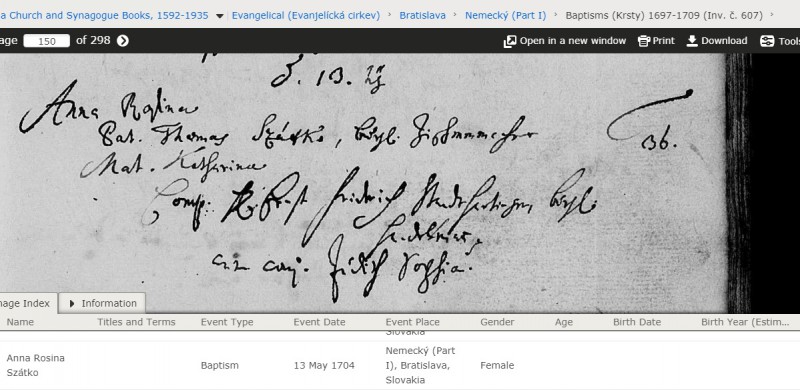 a Church and Synagogue Books, 1592-1935 ▼ Evangelical (Evanjelícká cirkev) › Bratislava › Nemecký (Part I) › Baptisms (Krsty) 1697-1709 (Inv. č. 607) ›
age 150 of 298 Open in a new window Print Download Tools
13.
Anna Rosina
Pat. Thomas Szátkó,
36.
Mat. Katharina
Comp. Ernst Fridrich
cum conj. Judith Sophia.
mage Index Information
Name Titles and Terms Event Type Event Date Event Place Gender Age Birth Date Birth Year (Estim...
Slovakia
Anna Rosina Szátko
Baptism
13 May 1704
Nemecký (Part I), Bratislava, Slovakia
Female